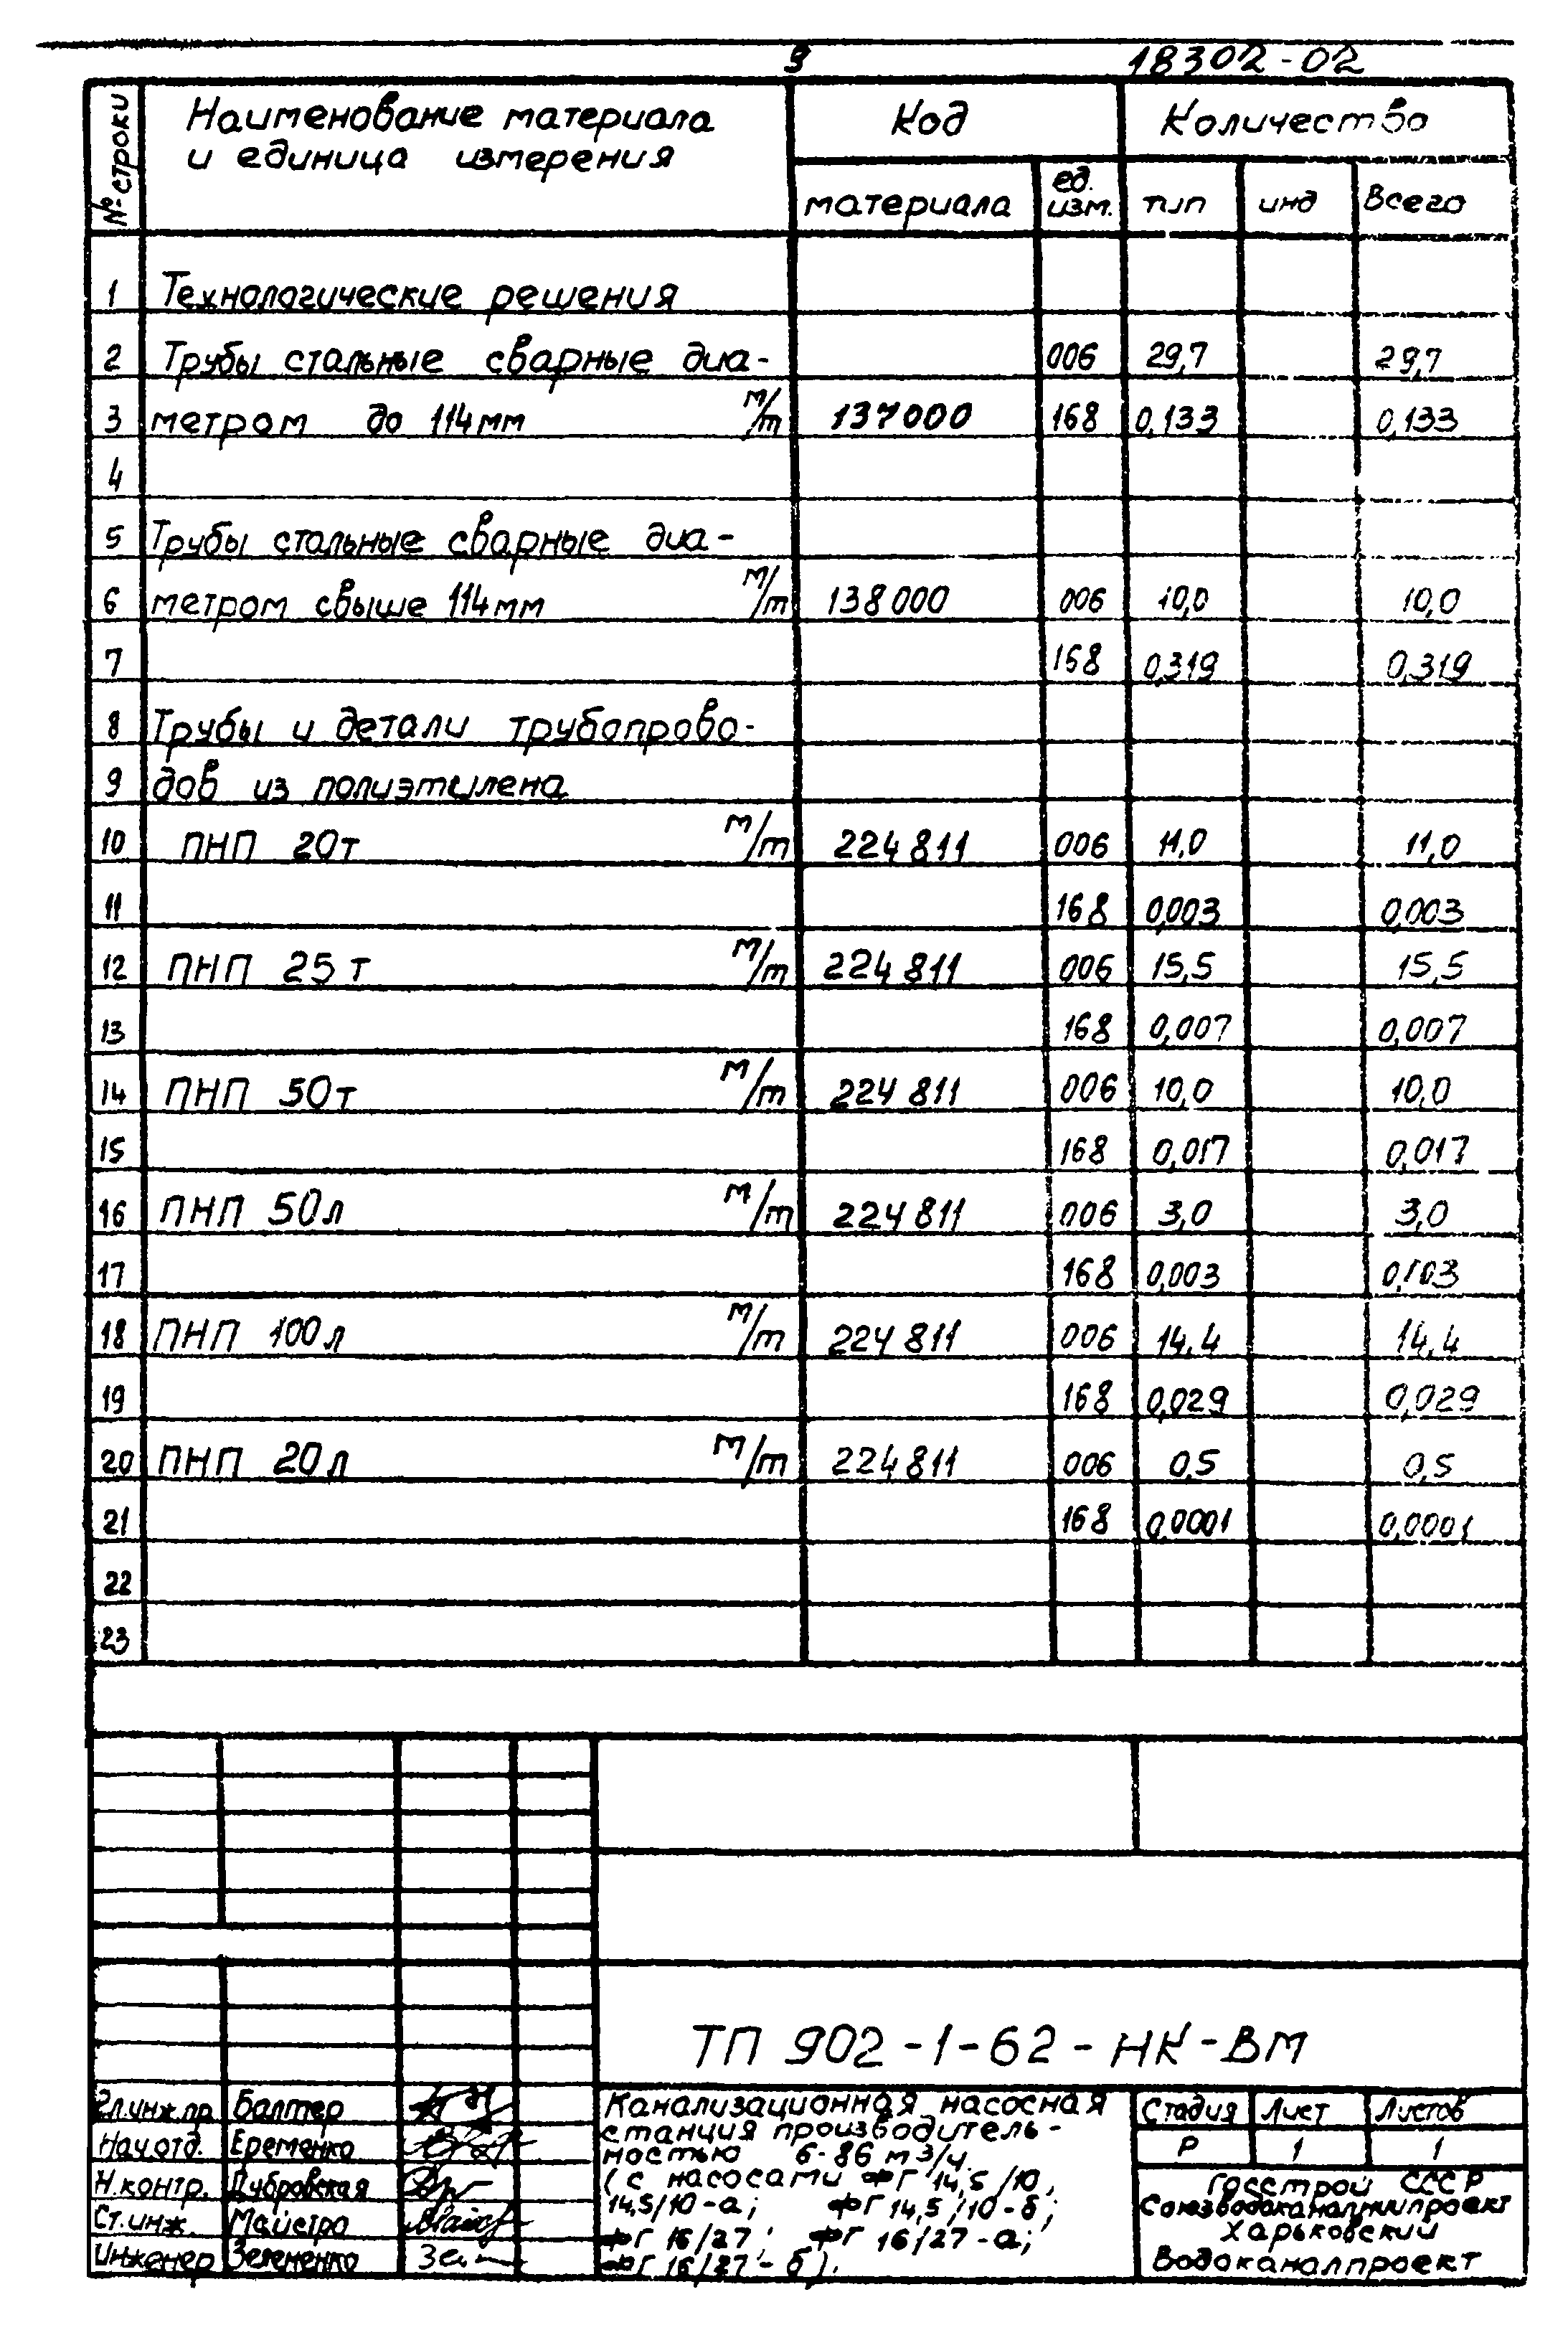 3 18302-02
№ строки Наименование материала и единица измерения Код Количество
материала ед. изм. тип инд Всего
1 Технологические решения
2 Трубы стальные сварные диа- 006 29,7 29,7
3 метром до 114мм м/т 137000 168 0,133 0,133
4
5 Трубы стальные сварные диа-
6 метром свыше 114мм м/т 138000 006 10,0 10,0
7 168 0,319 0,319
8 Трубы и детали трубопрово-
9 дов из полиэтилена
10 ПНП 20т м/т 224811 006 11,0 11,0
11 168 0,003 0,003
12 ПНП 25т м/т 224811 006 15,5 15,5
13 168 0,007 0,007
14 ПНП 50т м/т 224811 006 10,0 10,0
15 168 0,017 0,017
16 ПНП 50л м/т 224811 006 3,0 3,0
17 168 0,003
18 ПНП 100л м/т 224811 006 14,4 14,4
19 168 0,029 0,029
20 ПНП 20л м/т 224811 006 0,5 0,5
21 168 0,0001 0,0001
22
23
ТП 902-1-62-НК-ВМ
Гл.инж.пр. Балтер
Нач.отд. Еременко
Н.контр. Дубровская
Ст.инж. Майстро
Инженер Зелененко
Канализационная насосная
станция производитель-
ностью 6-86 м3/ч.
(с насосами ФГ 14,5/10,
14,5/10-а; ФГ 14,5/10-б;
ФГ 16/27; ФГ 16/27-а;
ФГ 16/27-б).
Стадия Лист Листов
Р 1 1
Госстрой СССР
Союзводоканалниипроект
Харьковский
Водоканалпроект